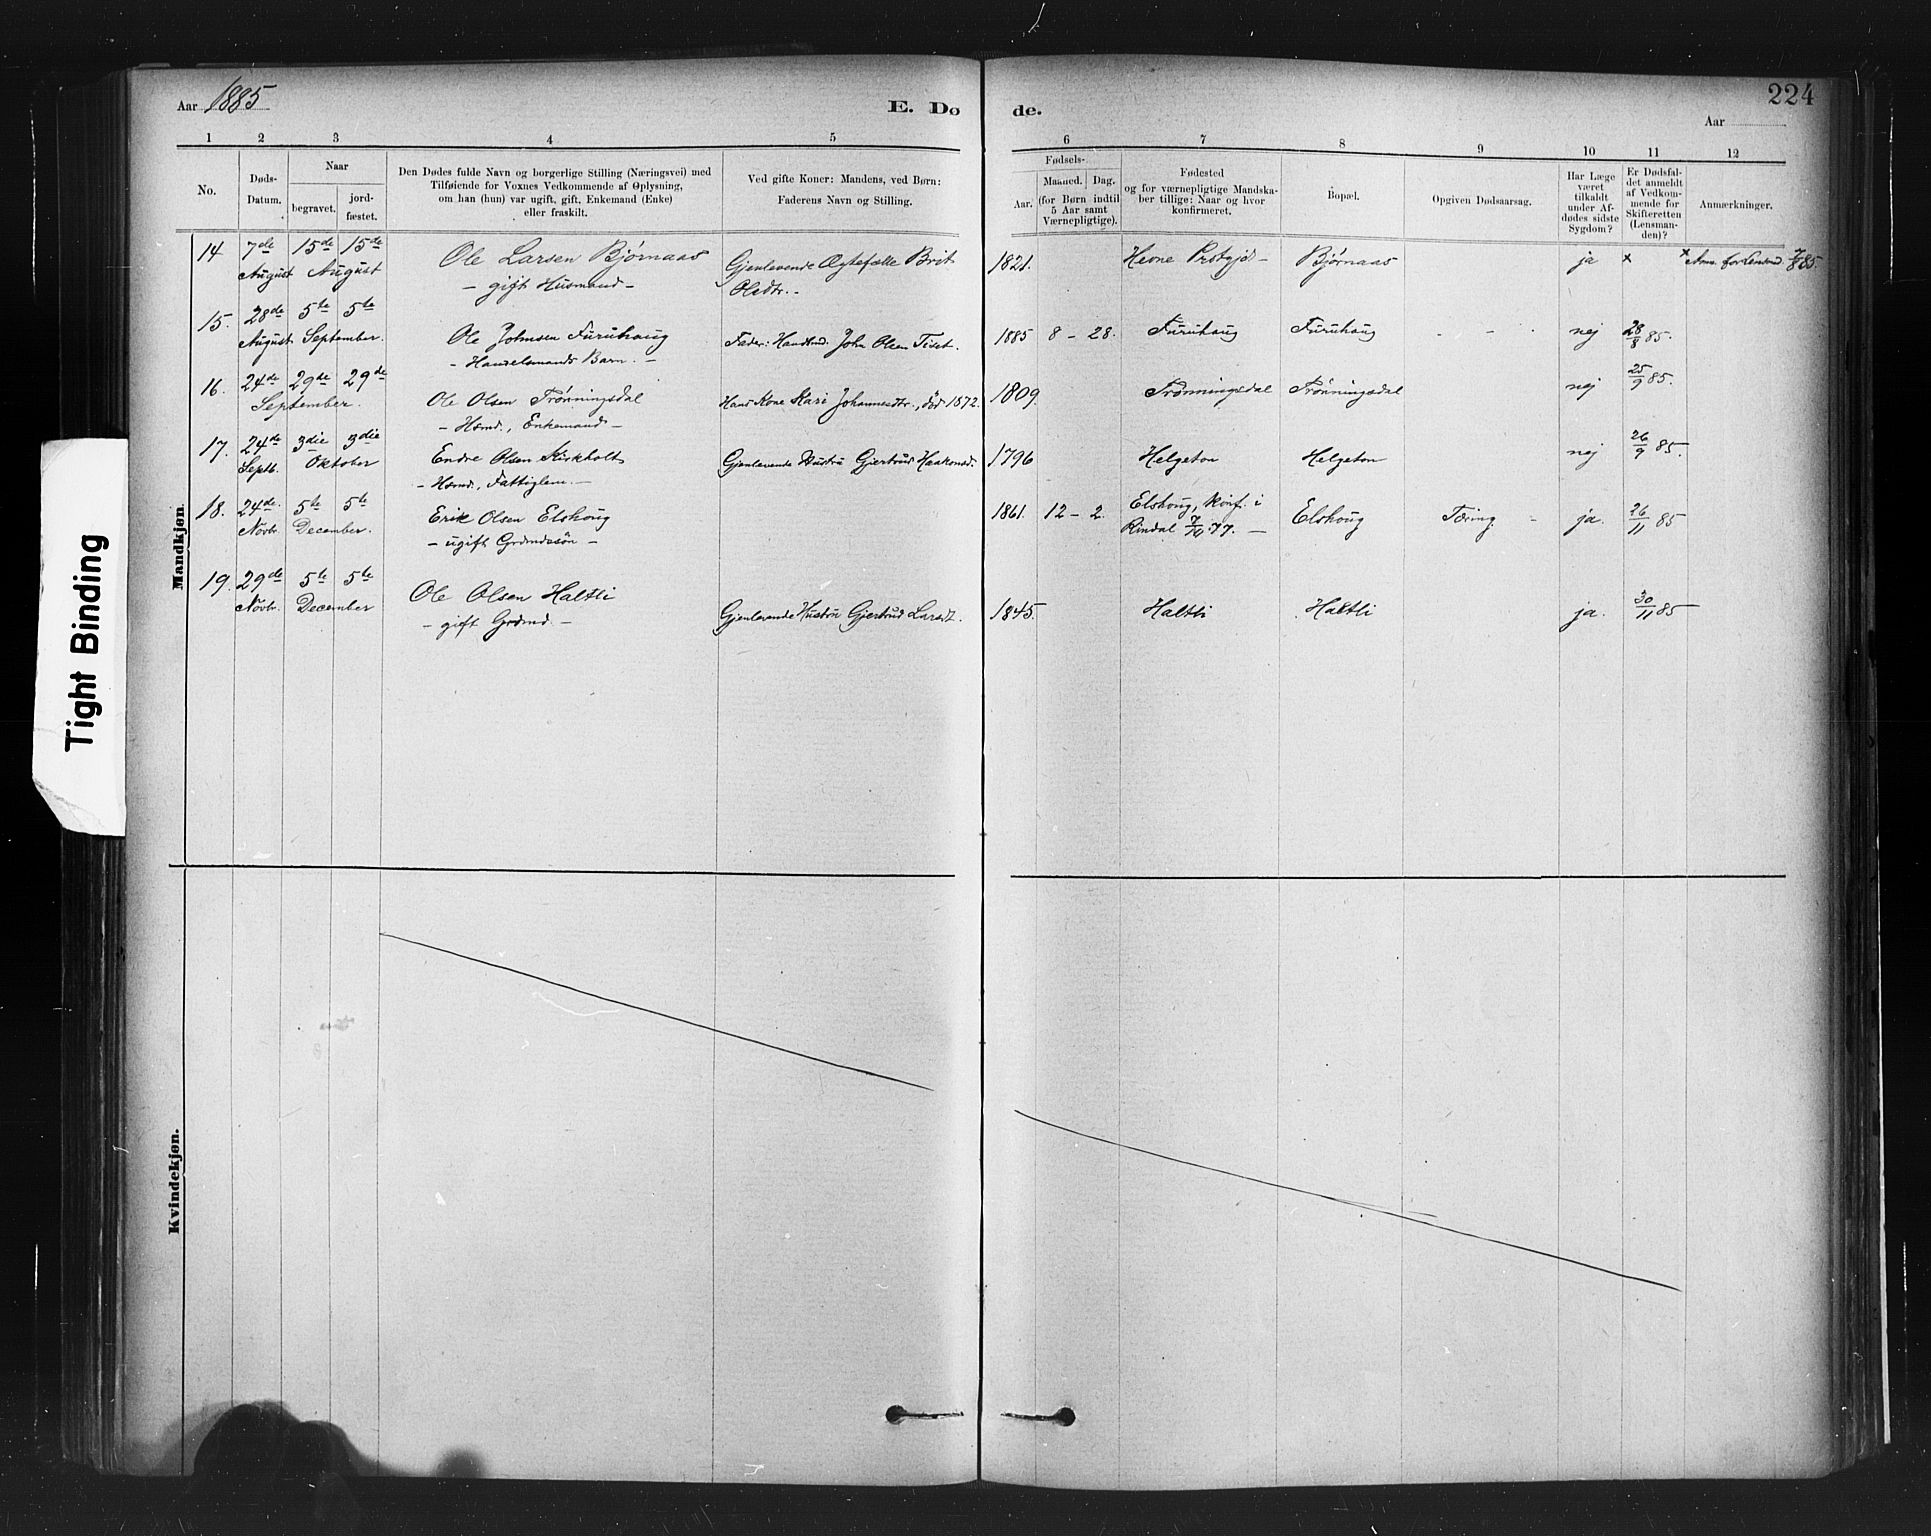 Aar 1885
E. Dø
de.
224
Aar
1 2 3 4 5 6 7 8 9 10 11 12
No.
Døds-
Datum.
Naar
begravet.
jord-
fæstet.
Den Dødes fulde Navn og borgerlige Stilling (Næringsvei) med
Tilføiende for Voxnes Vedkommende af Oplysning,
om han (hun) var ugift, gift, Enkemand (Enke)
eller fraskilt.
Ved gifte Koner: Mandens, ved Børn:
Faderens Navn og Stilling.
Fødsels-
Aar.
Maaned. Dag.
(for Børn indtil
5 Aar samt
Værnepligtige).
Fødested
og for værnepligtige Mandska-
ber tillige: Naar og hvor
konfirmeret.
Bopæl.
Opgiven Dødsaarsag.
Har Læge
været
tilkaldt
under Af-
dødes sidste
Sygdom?
Er Dødsfal-
det anmeldt
af Vedkom-
mende for
Skifteretten
(Lensman-
den)?
Anmærkninger.
Mandkjøn.
14 7de 15de 15de Ole Larsen Bjørnaas Gjenlevende Ægtefælle Brit 1821. Hevne Prstgjd - Bjørnaas ja x x Anm. for Lensmd. 7/8 85.
August August - gift Husmand - Olsdtr. -
15. 28de 5te 5te Ole Johnsen Furuhaug Fader: Handlmd. John Olsen Tiset. 1885 8 - 28. Furuhaug Furuhaug - - . nej 28/8 85.
August September. - Handelsmands Barn. -
16. 24de 29de 29de Ole Olsen Trønningsdal Hans Kone Kari Johannesdtr., död 1872. 1809. Trønningsdal Trønningsdal nej 25/9 85.
September. - Hsmd., Enkemand -
17. 24de 3die 3die Endre Olsen Kirkholt Gjenlevende Hustru Gjertrud Haakonsd. 1796 Helgeton Helgeton nej 26/9 85.
Septb. Oktober - Hsmd., Fattiglem. -
18. 24de. 5te 5te Erik Olsen Elshoug 1861. 12 - 2. Elshoug, konf. i Elshoug Tæring - ja. 26/11 85
Novbr. December. - ugift Grdmdssøn - Rindal 7/10 77. -
19. 29de 5te 5te Ole Olsen Haltli Gjenlevende Hustru Gjertrud Larsdt. 1845. Haltli Haltli ja. 30/11 85
Novbr. December - gift Grdmd. -
Kvindekjøn.
Tight Binding